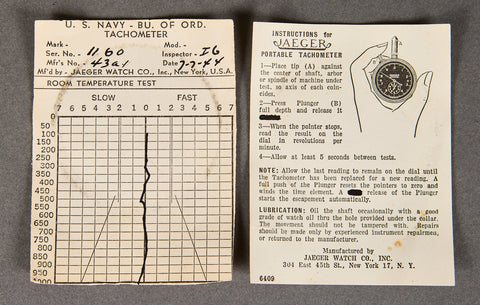 U. S. NAVY - BU. OF ORD.
TACHOMETER
Mark - Mod. -
Ser. No. - 1160 Inspector - IG
Mfr's No. - 43a1 Date 7-7-44
Mf'd by - JAEGER WATCH CO., Inc., New York, U.S.A.
ROOM TEMPERATURE TEST
SLOW FAST
7 6 5 4 3 2 1 0 1 2 3 4 5 6 7
50
100
150
200
250
300
350
400
450
500
550
600
650
700
750
800
850
900
950
1000
INSTRUCTIONS for
JAEGER
PORTABLE TACHOMETER
1—Place tip (A) against
the center of shaft, arbor
or spindle of machine under
test, so axis of each coin-
cides.
2—Press Plunger (B)
full depth and release it
3—When the pointer stops,
read the result on the dial
in revolutions per
minute.
4—Allow at least 5 seconds between tests.
NOTE: Allow the last reading to remain on the dial until
the Tachometer has been replaced for a new reading. A
full push of the Plunger resets the pointers to zero and
winds the time element. A release of the Plunger
starts the escapement automatically.
LUBRICATION: Oil the shaft occasionally with a good
grade of watch oil thru the hole provided under the collar.
The movement should not be tampered with. Repairs
should be made only by experienced instrument repairmen,
or returned to the manufacturer.
Manufactured by
JAEGER WATCH CO., INC.
304 East 45th St., New York 17, N. Y.
6409